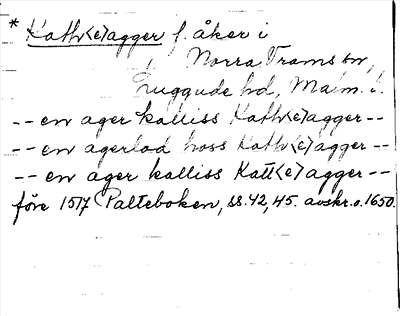 * Kath<e>agger f. åker i
Norra Vrams sn,
Luggude hd, Malm. l.
-- en ager kalliss Kath<e>agger --
-- en agerlad hoss Kath<e>agger --
-- en ager kalliss Katt<e>agger --
före 1517 Palteboken, ss. 42, 45. avskr. o. 1650.